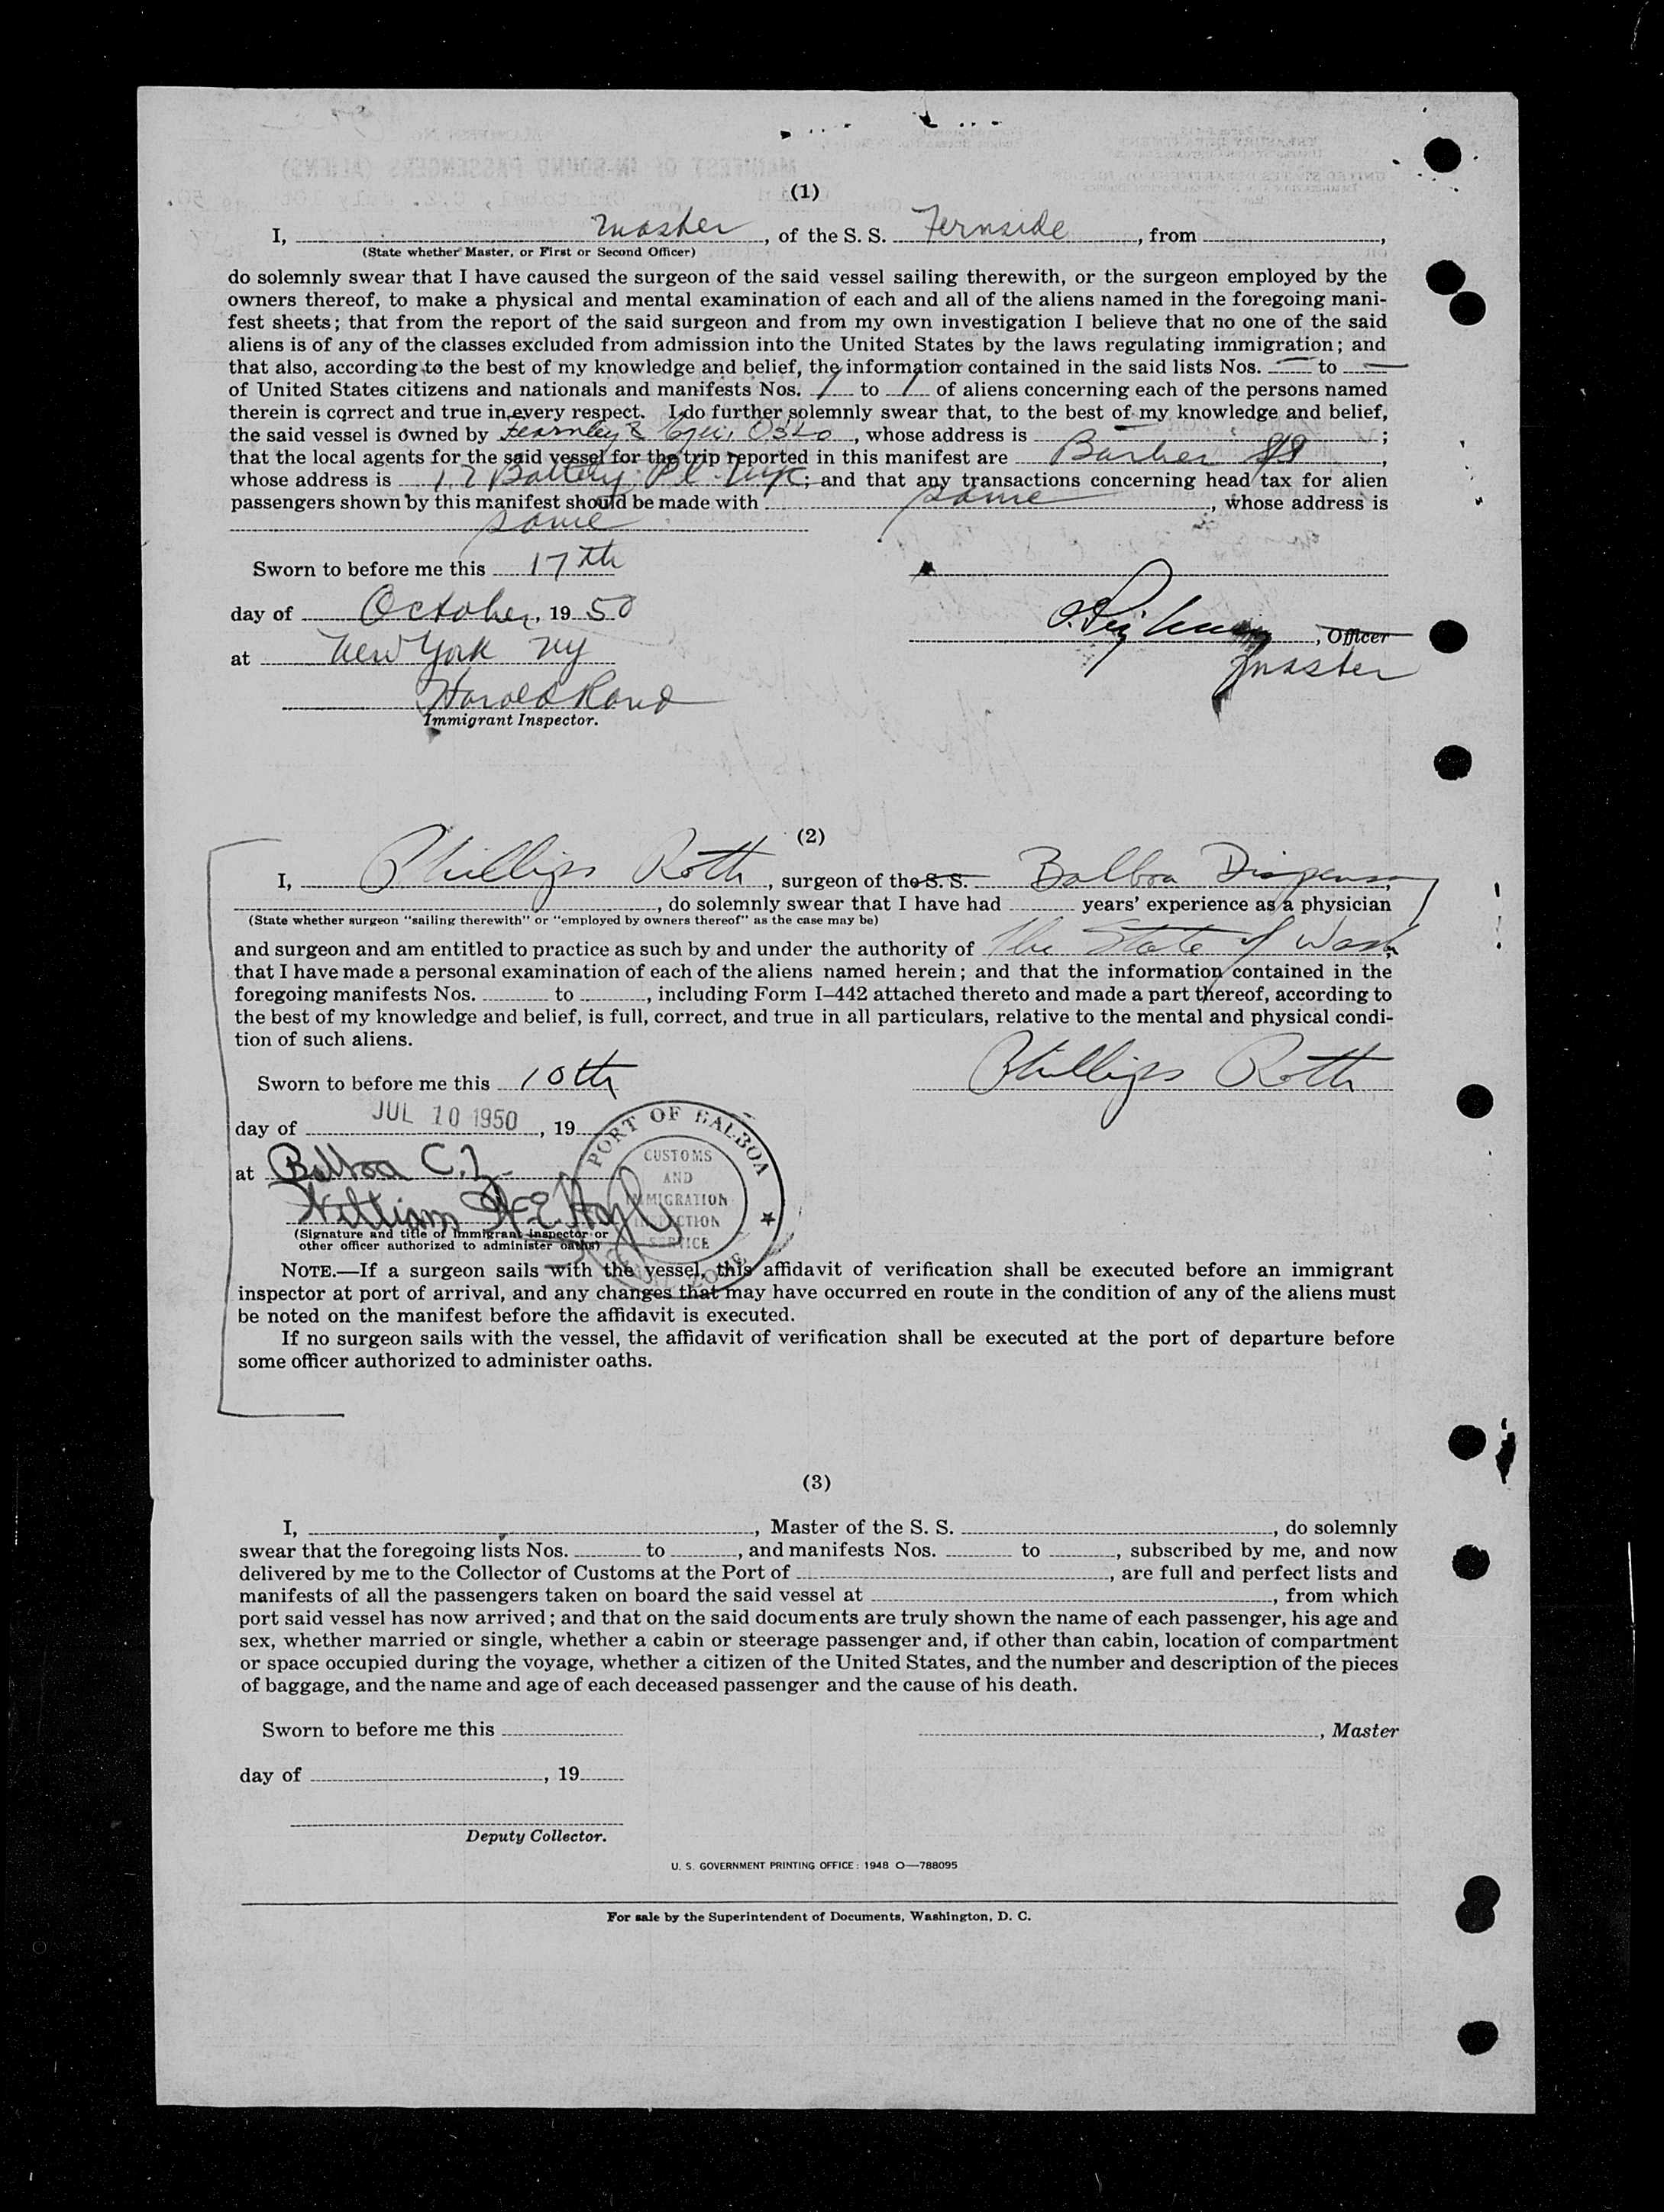 (1)
I, master, of the S. S. Fernside, from ,
(State whether Master, or First or Second Officer)
do solemnly swear that I have caused the surgeon of the said vessel sailing therewith, or the surgeon employed by the
owners thereof, to make a physical and mental examination of each and all of the aliens named in the foregoing mani-
fest sheets; that from the report of the said surgeon and from my own investigation I believe that no one of the said
aliens is of any of the classes excluded from admission into the United States by the laws regulating immigration; and
that also, according to the best of my knowledge and belief, the information contained in the said lists Nos. — to —
of United States citizens and nationals and manifests Nos. 1 to 1 of aliens concerning each of the persons named
therein is correct and true in every respect. I do further solemnly swear that, to the best of my knowledge and belief,
the said vessel is owned by Fearnley & Oslo, whose address is ;
that the local agents for the said vessel for the trip reported in this manifest are Barber SS,
whose address is 17 Battery Pl. NYC; and that any transactions concerning head tax for alien
passengers shown by this manifest should be made with same, whose address is
same
Sworn to before me this 17th
day of October, 1950
, Officer
at New York NY
master
Harold Rand
Immigrant Inspector.
(2)
I, Phillips Roth, surgeon of the S. S. Balboa Dispensary
, do solemnly swear that I have had years' experience as a physician
(State whether surgeon "sailing therewith" or "employed by owners thereof" as the case may be)
and surgeon and am entitled to practice as such by and under the authority of the State of Wash;
that I have made a personal examination of each of the aliens named herein; and that the information contained in the
foregoing manifests Nos. to , including Form I–442 attached thereto and made a part thereof, according to
the best of my knowledge and belief, is full, correct, and true in all particulars, relative to the mental and physical condi-
tion of such aliens.
Phillips Roth
Sworn to before me this 10th
day of JUL 10 1950, 19
at Balboa C.Z.
William
(Signature and title of immigrant inspector or
other officer authorized to administer oaths)
PORT OF BALBOA
CUSTOMS
AND
IMMIGRATION
INSPECTION
SERVICE
ZONE
NOTE.—If a surgeon sails with the vessel, this affidavit of verification shall be executed before an immigrant
inspector at port of arrival, and any changes that may have occurred en route in the condition of any of the aliens must
be noted on the manifest before the affidavit is executed.
If no surgeon sails with the vessel, the affidavit of verification shall be executed at the port of departure before
some officer authorized to administer oaths.
(3)
I, , Master of the S. S. , do solemnly
swear that the foregoing lists Nos. to , and manifests Nos. to , subscribed by me, and now
delivered by me to the Collector of Customs at the Port of , are full and perfect lists and
manifests of all the passengers taken on board the said vessel at , from which
port said vessel has now arrived; and that on the said documents are truly shown the name of each passenger, his age and
sex, whether married or single, whether a cabin or steerage passenger and, if other than cabin, location of compartment
or space occupied during the voyage, whether a citizen of the United States, and the number and description of the pieces
of baggage, and the name and age of each deceased passenger and the cause of his death.
Sworn to before me this
, Master
day of , 19
Deputy Collector.
U. S. GOVERNMENT PRINTING OFFICE: 1948 O—788095
For sale by the Superintendent of Documents, Washington, D. C.